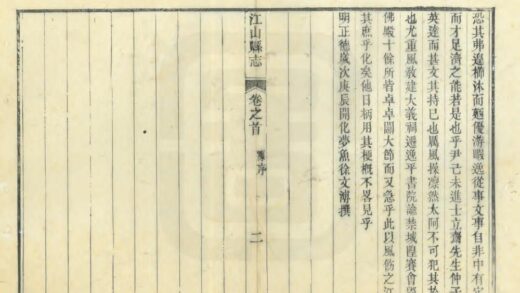 恐其弗遑櫛沐而廼優游暇逸從事文事自非中有定
而才足濟之能若是也乎尹己未進士立齋先生仲子
英達而甚文其持己也厲風操凜然太阿不可犯其於
也尤重風教建大義祠遷逸平書院論禁城隍賽會毀
佛殿十餘所皆卓卓關大節而又急乎此以風飭之江
其庶乎化矣他日柄用其梗概不畧見乎
明正德歲次庚辰開化夢魚徐文溥撰
江山縣志 卷之首 舊序 二